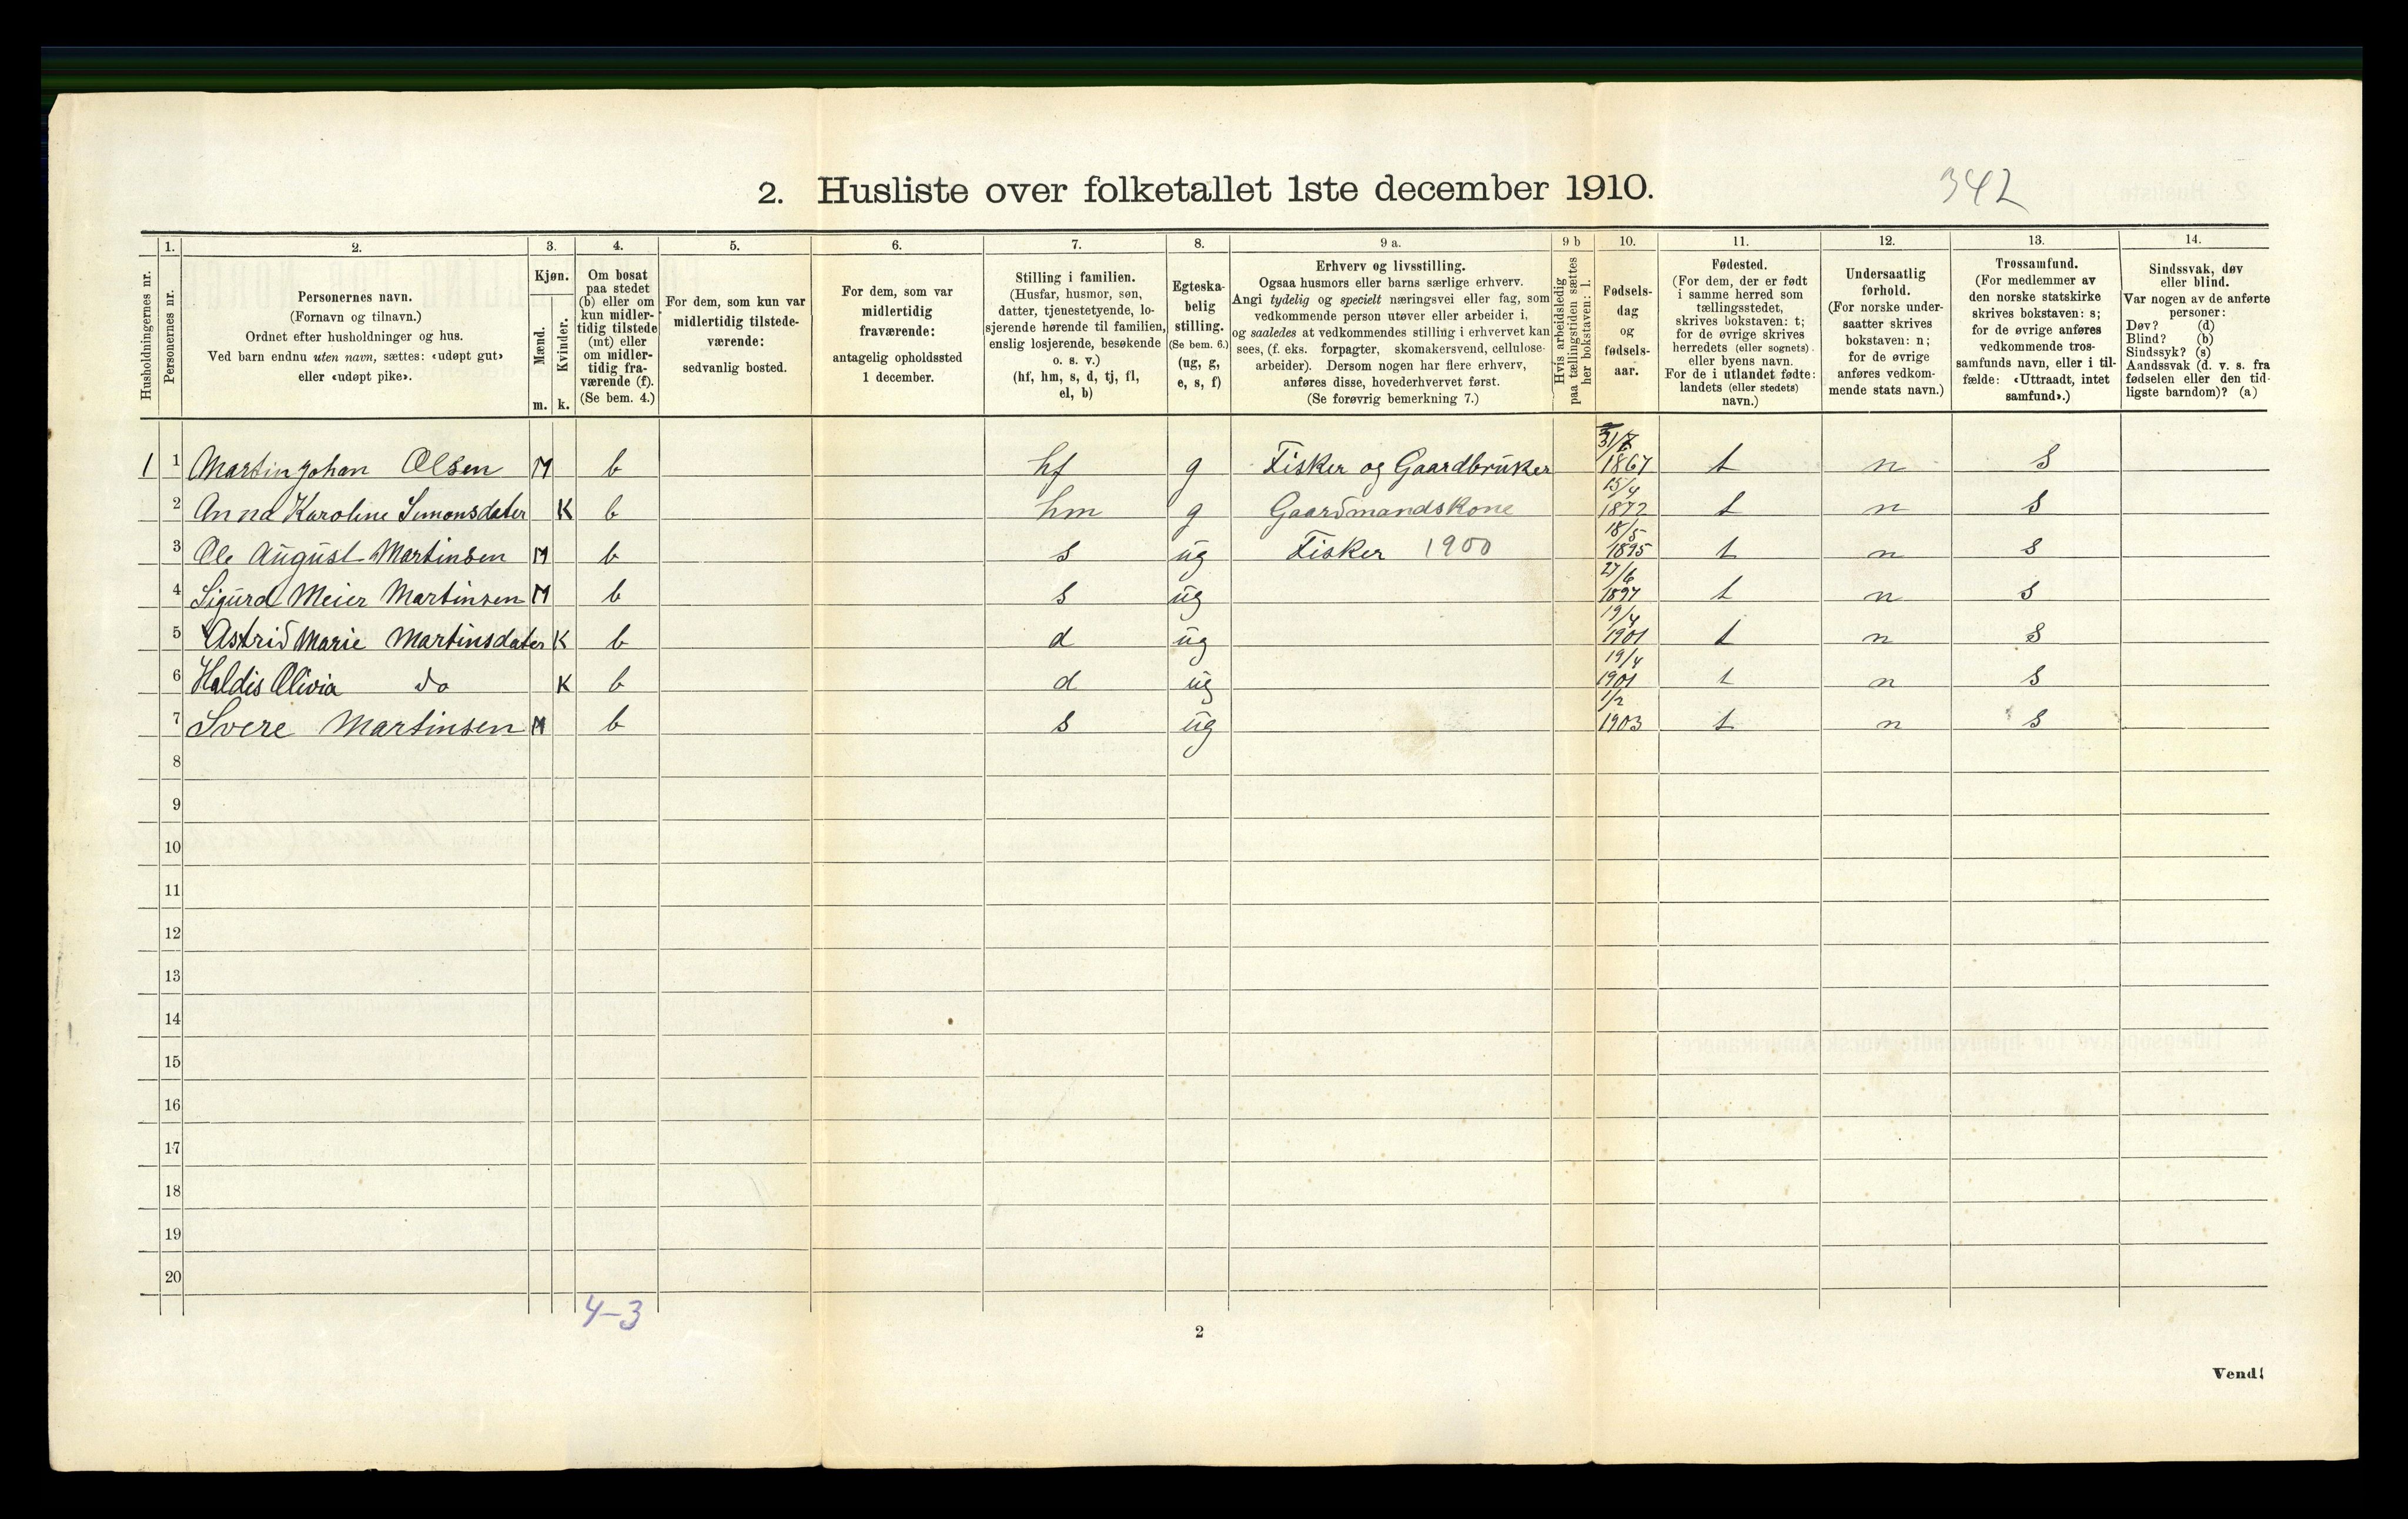 342
2. Husliste over folketallet 1ste december 1910.
Husholdningernes nr.
1.
Personernes nr.
2.
Personernes navn.
(Fornavn og tilnavn.)
Ordnet efter husholdninger og hus.
Ved barn endnu uten navn, sættes: «udøpt gut»
eller «udøpt pike».
3.
Kjøn.
Mænd.
Kvinder.
m. k.
4.
Om bosat
paa stedet
(b) eller om
kun midler-
tidig tilstede
(mt) eller
om midler-
tidig fra-
værende (f).
(Se bem. 4.)
5.
For dem, som kun var
midlertidig tilstede-
værende:
sedvanlig bosted.
6.
For dem, som var
midlertidig
fraværende:
antagelig opholdssted
1 december.
7.
Stilling i familien.
(Husfar, husmor, søn,
datter, tjenestetyende, lo-
sjerende hørende til familien,
enslig losjerende, besøkende
o. s. v.)
(hf, hm, s, d, tj, fl,
el, b)
8.
Egteska-
belig
stilling.
(Se bem. 6.)
(ug, g,
e, s, f)
9 a.
Erhverv og livsstilling.
Ogsaa husmors eller barns særlige erhverv.
Angi tydelig og specielt næringsvei eller fag, som
vedkommende person utøver eller arbeider i,
og saaledes at vedkommendes stilling i erhvervet kan
sees, (f. eks. forpagter, skomakersvend, cellulose-
arbeider). Dersom nogen har flere erhverv,
anføres disse, hovederhvervet først.
(Se forøvrig bemerkning 7.)
9 b
Hvis arbeidsledig
paa tællingstiden sættes
her bokstaven: l.
10.
Fødsels-
dag
og
fødsels-
aar.
11.
Fødested.
(For dem, der er født
i samme herred som
tællingsstedet,
skrives bokstaven: t;
for de øvrige skrives
herredets (eller sognets)
eller byens navn.
For de i utlandet fødte:
landets (eller stedets)
navn.)
12.
Undersaatlig
forhold.
(For norske under-
saatter skrives
bokstaven: n;
for de øvrige
anføres vedkom-
mende stats navn.)
13.
Trossamfund.
(For medlemmer av
den norske statskirke
skrives bokstaven: s;
for de øvrige anføres
vedkommende tros-
samfunds navn, eller i til-
fælde: «Uttraadt, intet
samfund».)
14.
Sindssvak, døv
eller blind.
Var nogen av de anførte
personer:
Døv? (d)
Blind? (b)
Sindssyk? (s)
Aandssvak (d. v. s. fra
fødselen eller den tid-
ligste barndom)? (a)
1 1 Martin Johan Olsen M b hf g Fisker og Gaardbruker 1867 t n S
2 Anna Karoline Simonsdater K b hm g Gaardmandskone 15/4 1872 t n S
3 Ole August Martinsen M b s ug Fisker 1900 18/5 1895 t n S
4 Sigurd Meier Martinsen M b s ug 27/6 1897 t n S
5 Astrid Marie Martinsdater K b d ug 19/4 1901 t n S
6 Haldis Olivia do K b d ug 19/4 1901 t n S
7 Svere Martinsen M b s ug 1/2 1903 t n S
8
9
10
11
12
13
14
15
16
17
18
19
20
4-3
2
Vend!